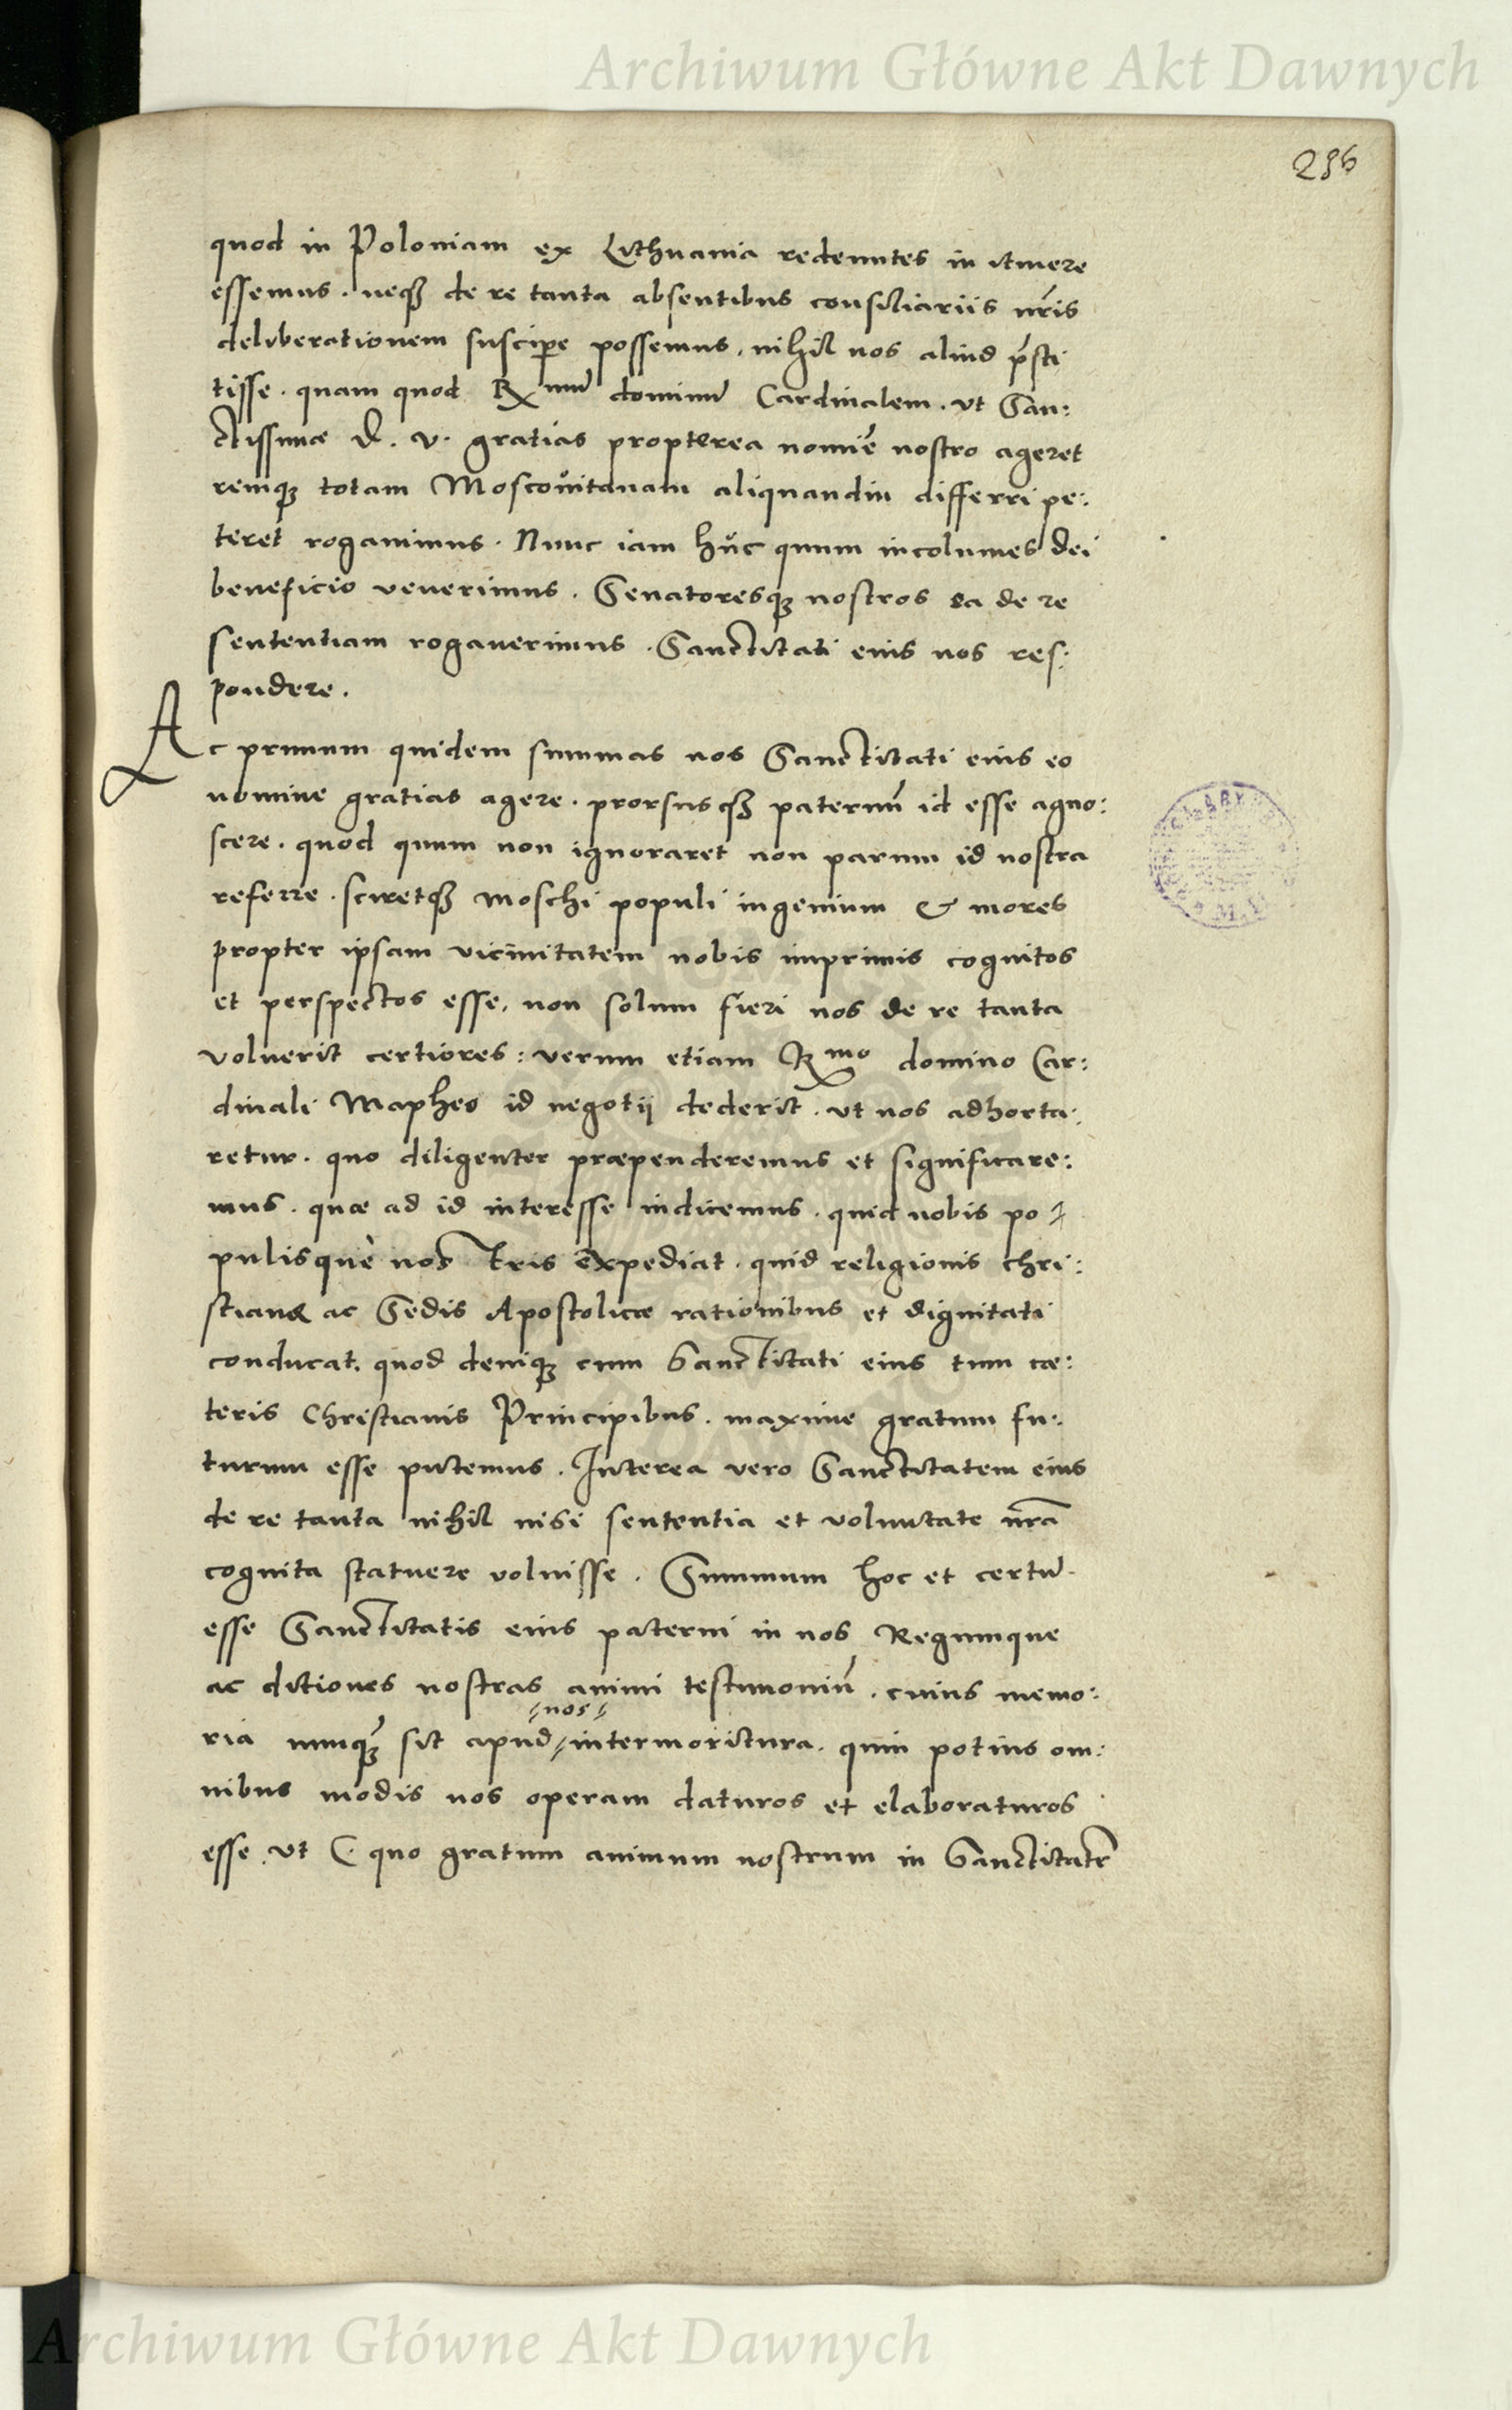 Archiwum Główne Akt Dawnych
296
quod in Poloniam ex Lithuania redeuntes in itinere
essemus. neqʒ de re tanta absentibus consiliariis nr̃is
deliberationem suscipe possemus, nihil nos aliud p̃sti
tisse. quam quod Rmũ dominũ Cardinalem. ut San:
ctissimæ D. V. gratias propterea nomiẽ nostro ageret
remqʒ totam Moscovitanam aliquandiu differri pe:
teret rogavimus. Nunc iam hũc quum incolumes dei
beneficio venerimus. Senatoresqʒ nostros ea de re
sententiam rogaverimus. Sanctitati eius nos res:
pondere.
Ac primum quidem summas nos Sanctitati eius eo
nomine gratias agere. prorsusqʒ paternũ id esse agno:
scere. quod quum non ignoraret non parum id nostra
referre. sciretqʒ Moschi populi ingenium & mores
propter ipsam vicinitatem nobis imprimis cognitos
et perspectos esse, non solum fieri nos de re tanta
voluerit certiores: verum etiam Rmo domino Car:
dinali Mapheo id negotij dederit. ut nos adhorta:
retur. quo diligenter præpenderemus et significare:
mus. quæ ad id interesse iudicemus. quid nobis po
pulisquè nostris expediat. quid religionis chri:
stianæ ac Sedis Apostolicæ rationibus et dignitati
conducat. quod deniqʒ cum Sanctitati eius tum cæ:
teris Christianis Principibus. maxime gratum fu:
turum esse putemus. Interea vero Sanctitatem eius
de re tanta nihil nisi sententia et voluntate nr̃a
cognita statuere voluisse. Summum hoc et certũ
esse Sanctitatis eius paterni in nos Regnumque
ac ditiones nostras animi testimoniũ. cuius memo:
nos
ria nunqʒ̃ sit apud intermoritura. quin potius om:
nibus modis nos operam daturos et elaboraturos
esse. ut C quo gratum animum nostrum in Sanctitatẽ
Archiwum Główne Akt Dawnych